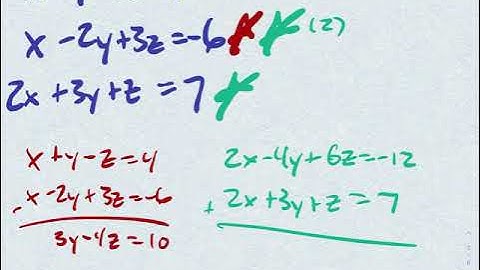 x - 2y + 3z = -6 (2)
2x + 3y + z = 7
x + y - z = 4
- x - 2y + 3z = -6
3y - 4z = 10
2x - 4y + 6z = -12
+ 2x + 3y + z = 7